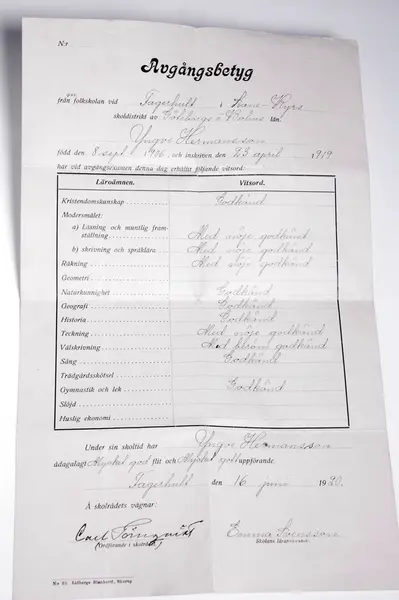 N:r
Avgångsbetyg
från folkskolan vid Fagerhult i
skoldistrikt av Göteborgs o. Bohus län.
Yngve Hermansson
född den 8 sept. 1906, och inskriven den 23 april 1919
har vid avgångsexamen denna dag erhållit följande vitsord.
Läroämnen. Vitsord.
Kristendomskunskap Godkänd
Modersmålet:
a) Läsning och muntlig fram-
ställning Med nöje godkänd
b) skrivning och språklära Med nöje godkänd
Räkning Med nöje godkänd
Geometri
Naturkunnighet Godkänd
Geografi Godkänd
Historia Godkänd
Teckning Med nöje godkänd
Välskrivning Med nöje godkänd
Sång Godkänd
Trädgårdsskötsel
Gymnastik och lek Godkänd
Slöjd
Huslig ekonomi
Under sin skoltid har Yngve Hermansson
ådagalagt Mycket god flit och Mycket gott uppförande.
Fagerhult den 16 juni 1920.
Å skolrådets vägnar:
Carl Törnqvist Emma Svensson
(Ordförande i skolrådet) Skolans